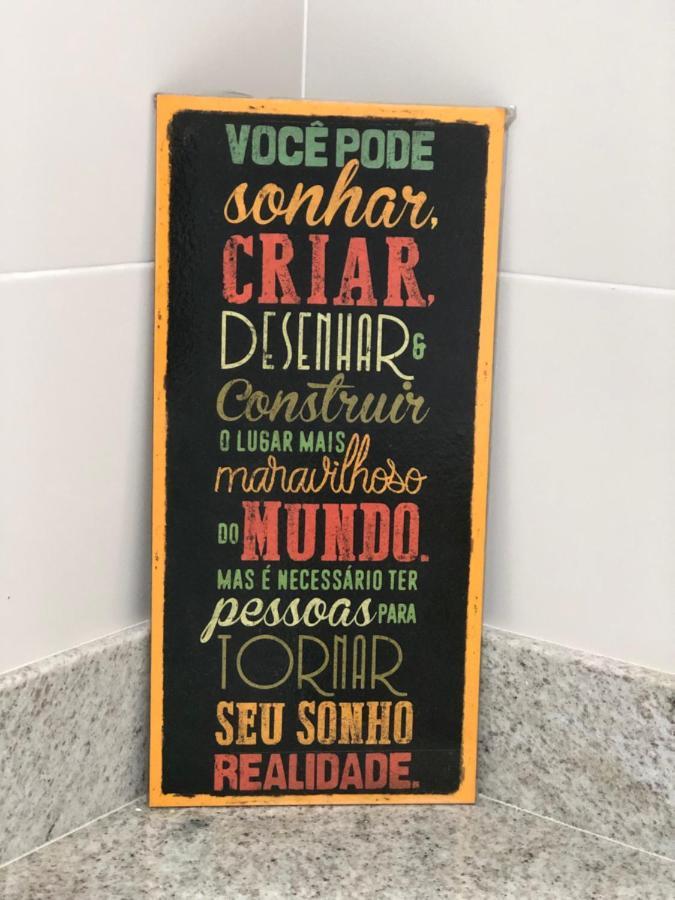 VOCÊ PODE
sonhar,
CRIAR,
DESENHAR &
Construir
O LUGAR MAIS
maravilhoso
DO MUNDO.
MAS É NECESSÁRIO TER
pessoas PARA
TORNAR
SEU SONHO
REALIDADE.